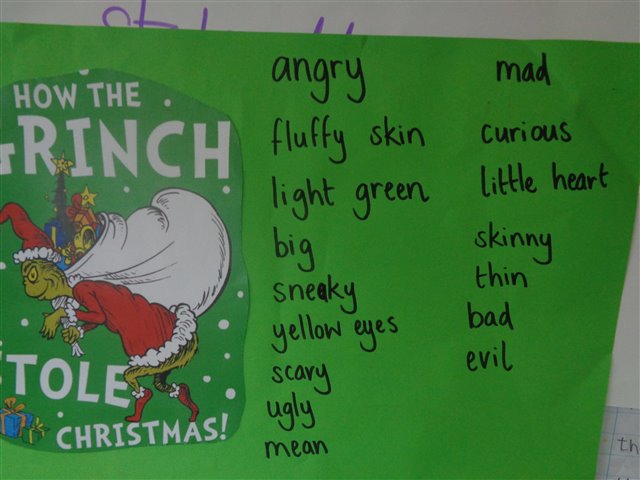 HOW THE
GRINCH
STOLE
CHRISTMAS!
angry
fluffy skin
light green
big
sneaky
yellow eyes
scary
ugly
mean
mad
curious
little heart
skinny
thin
bad
evil
th